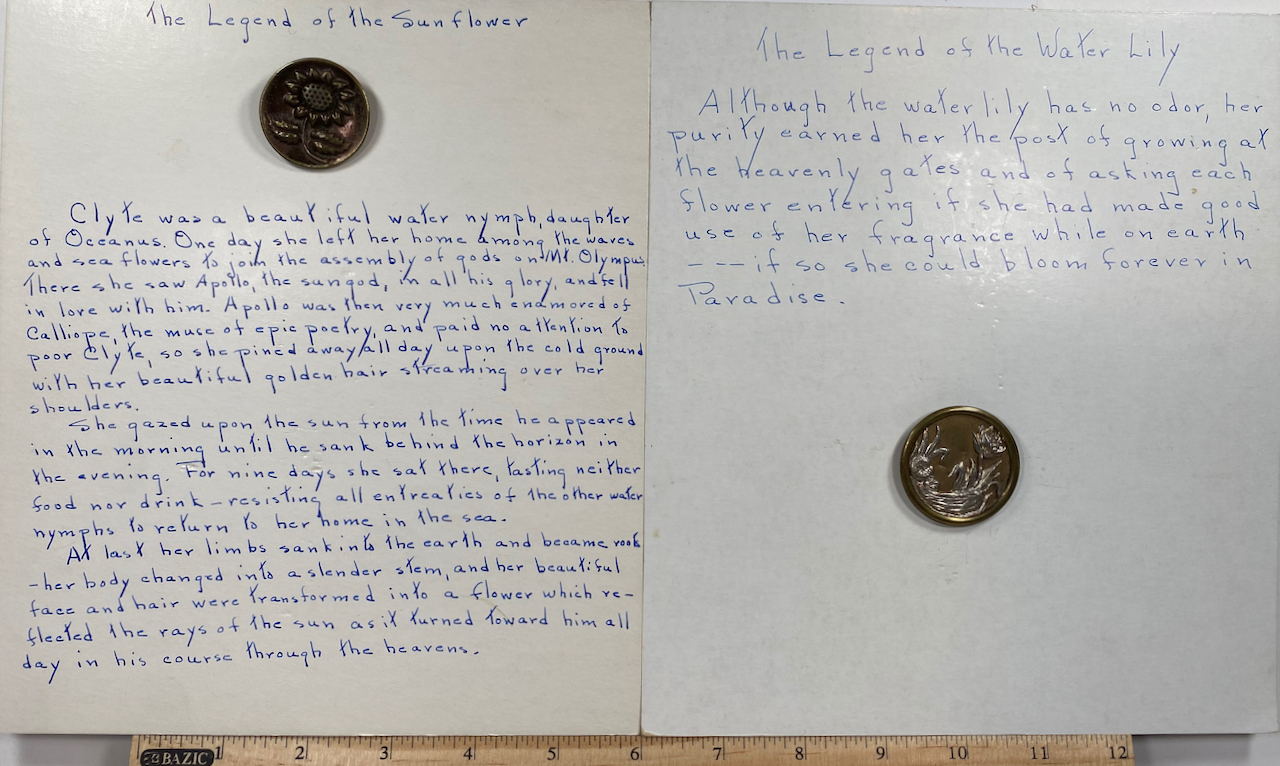 The Legend of the Sunflower
Clyte was a beautiful water nymph, daughter
of Oceanus. One day she left her home among the waves
and sea flowers to join the assembly of gods on Mt. Olympus.
There she saw Apollo, the sun god, in all his glory, and fell
in love with him. Apollo was then very much enamored of
Calliope, the muse of epic poetry, and paid no attention to
poor Clyte, so she pined away all day upon the cold ground
with her beautiful golden hair streaming over her
shoulders.
She gazed upon the sun from the time he appeared
in the morning until he sank behind the horizon in
the evening. For nine days she sat there, tasting neither
food nor drink - resisting all entreaties of the other water
nymphs to return to her home in the sea.
At last her limbs sank into the earth and became root
- her body changed into a slender stem, and her beautiful
face and hair were transformed into a flower which re-
flected the rays of the sun as it turned toward him all
day in his course through the heavens.
The Legend of the Water Lily
Although the water lily has no odor, her
purity earned her the post of growing at
the heavenly gates and of asking each
flower entering if she had made good
use of her fragrance while on earth
--- if so she could bloom forever in
Paradise.
BAZIC 1 2 3 4 5 6 7 8 9 10 11 12